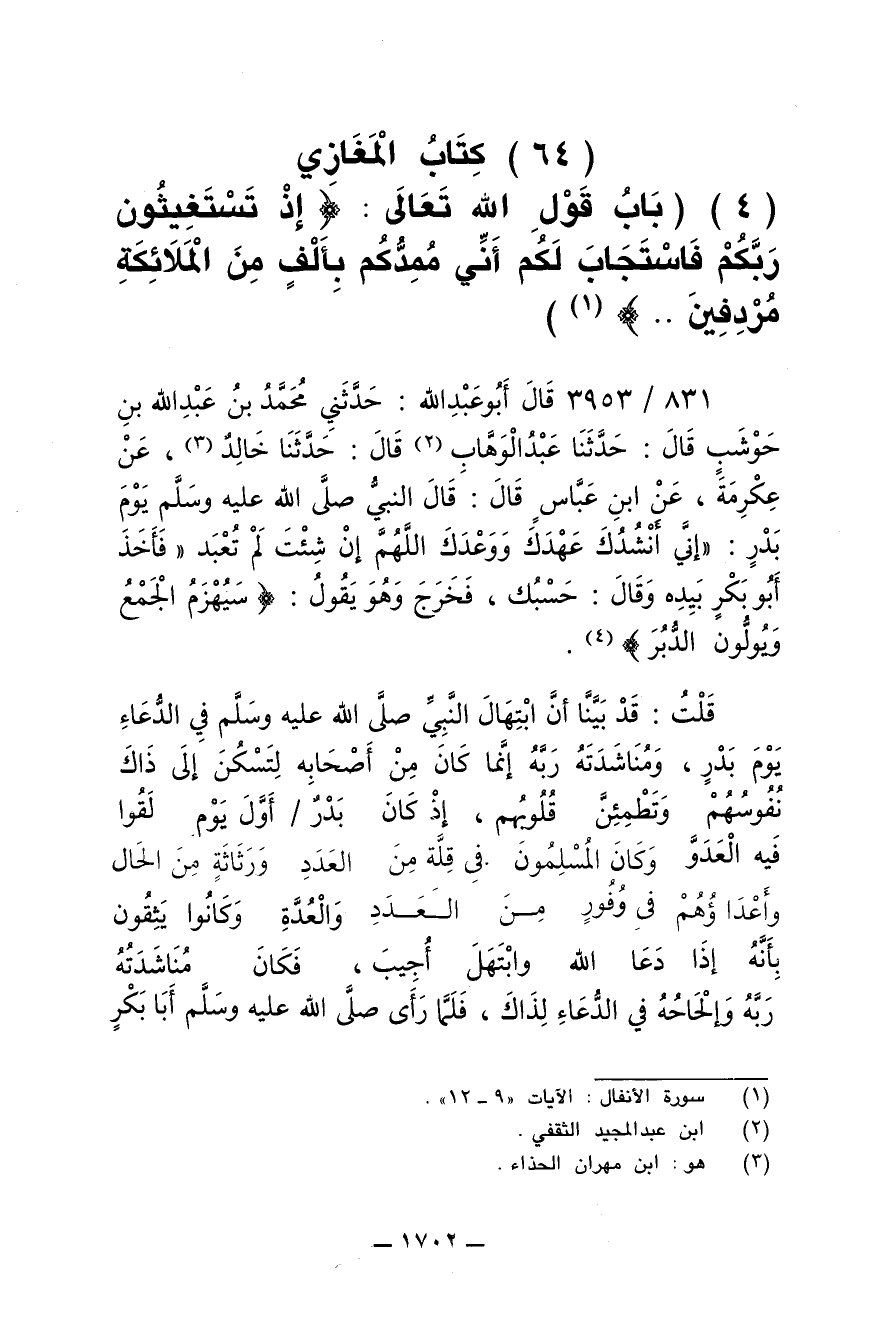 ( ٦٤ ) كِتَابُ الْمَغَازِي
( ٤ ) ( بَابُ قَوْلِ الله تَعَالَى : ﴿ إِذْ تَسْتَغِيثُون
رَبَّكُمْ فَاسْتَجَابَ لَكُم أَنِّي مُمِدُّكُم بِأَلْفٍ مِنَ الْمَلَائِكَةِ
مُرْدِفِينَ .. ﴾ (١) )
٨٣١ / ٣٩٥٣ قَالَ أَبُوعَبْدِالله : حَدَّثَنِي مُحَمَّدُ بنُ عَبْدِالله بنِ
حَوْشَبٍ قَالَ : حَدَّثَنَا عَبْدُالْوَهَّابِ (٢) قَالَ : حَدَّثَنَا خَالِدٌ (٣) ، عَنْ
عِكْرِمَةَ ، عَنْ ابنِ عَبَّاسٍ قَالَ : قَالَ النبيُّ صلَّى الله عليه وسَلَّم يَوْمَ
بَدْرٍ : «إنَّي أَنْشُدُكَ عَهْدَكَ وَوَعْدَكَ اللَّهُمَّ إنْ شِئْتَ لَمْ تُعْبَد » فَأَخَذَ
أَبُو بَكْرٍ بَيِدِه وَقَالَ : حَسْبُك ، فَخَرَجَ وَهُوَ يَقُولُ : ﴿ سَيُهْزَمُ الْجَمْعُ
وَيُولُّون الدُّبُرَ ﴾ (٤) .
قَلْتُ : قَدْ بَيَّنَّا أنَّ ابْتِهَالَ النَّبِيِّ صلَّى الله عليه وسَلَّم فِي الدُّعَاءِ
يَوْمَ بَدْرٍ ، وَمُنَاشَدَتَهُ رَبَّهُ إنَّما كَانَ مِنْ أَصْحَابِه لِتَسْكُنَ إلَى ذَاكَ
نُفُوسُهُمْ وَتَطْمِئِنَّ قُلُوبُهم ، إذْ كَانَ بَدْرٌ / أَوَّلَ يَوْمٍ لَقُوا
فَيه الْعَدَوَّ وَكَانَ الْمُسْلِمُونَ فِي قِلَّة مِنَ العَدَدِ وَرَثَاثَةٍ مِنَ الحَال
وأَعْدَاؤُهُمْ فِي وُفُورٍ مِـنَ الـعَـدَدِ وَالْعُدَّةِ وَكَانُوا يَثِقُون
بِأَنَّهُ إذَا دَعَا الله وابْتَهَلَ أُجِيبَ ، فَكَانَ مُنَاشَدَتُهُ
رَبَّهُ وَإلْحَاحُهُ فِي الدُّعَاءِ لِذَاكَ ، فَلَمَّا رَأَى صلَّى الله عليه وسَلَّم أَبَا بَكْرٍ
(١) سورة الأنفال : الآيات «٩ ـ ١٢» .
(٢) ابن عبدالمجيد الثقفي .
(٣) هو : ابن مهران الحذاء .
ـ ١٧٠٢ ـ